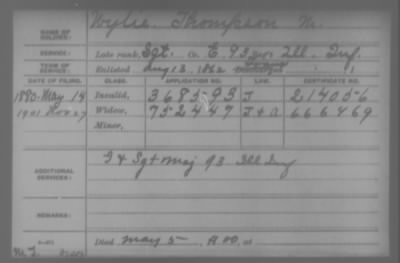 NAME OF SOLDIER: Wylie, Thompson M.
SERVICE: Late rank, Sgt. Co. E, 93 Reg't Ill. Inf.
TERM OF SERVICE: Enlisted Aug 13, 1862
DATE OF FILING. CLASS. APPLICATION NO. LAW. CERTIFICATE NO.
1880 May 14 Invalid, 368593 J 214056
1901 Nov 27 Widow, 752447 J + a 666469
Minor,
ADDITIONAL SERVICES: I + Sgt Maj 93 Ill Inf
REMARKS:
Died May 5 at